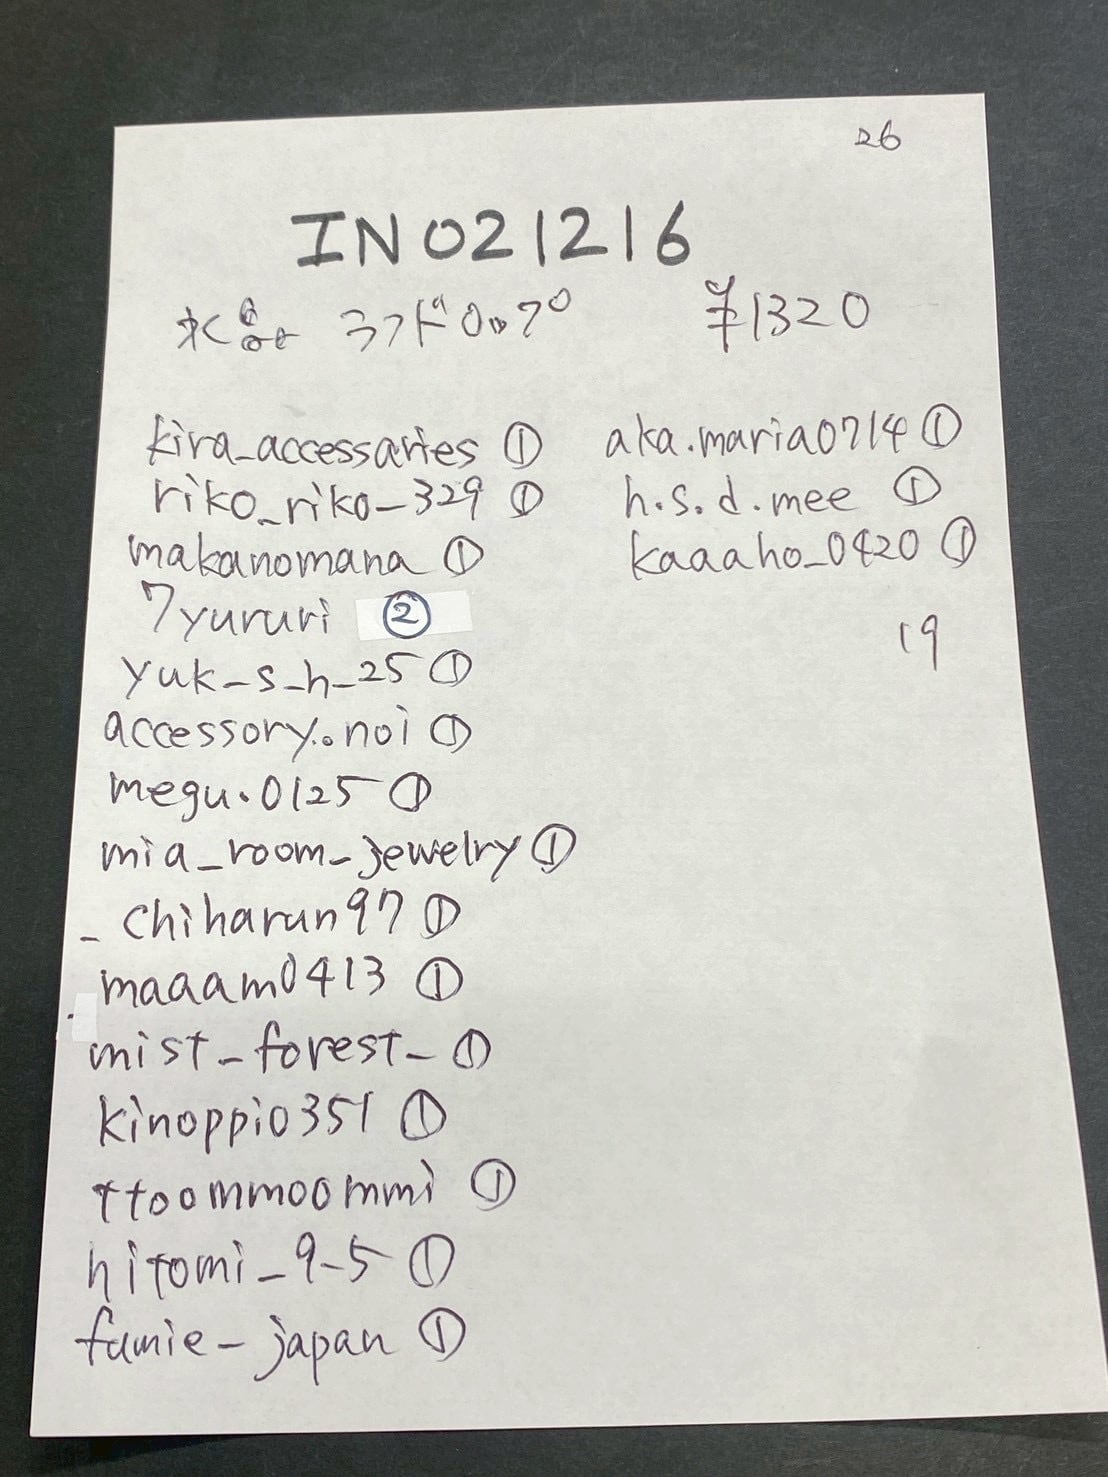 26
IN021216
水晶 ラフドロップ ¥1320
kira_accessaries ①
riko_riko_329 ①
makanomana ①
7yururi ②
yuk_s_h_25 ①
accessory.noi ①
megu.0125 ①
mia_room_jewelry ①
_chiharun97 ①
maaam0413 ①
mist_forest_ ①
kinoppio351 ①
ttoommoommi ①
hitomi_9_5 ①
fumie_japan ①
aka.maria0714 ①
h.s.d.mee ①
kaaaho_0420 ①
19